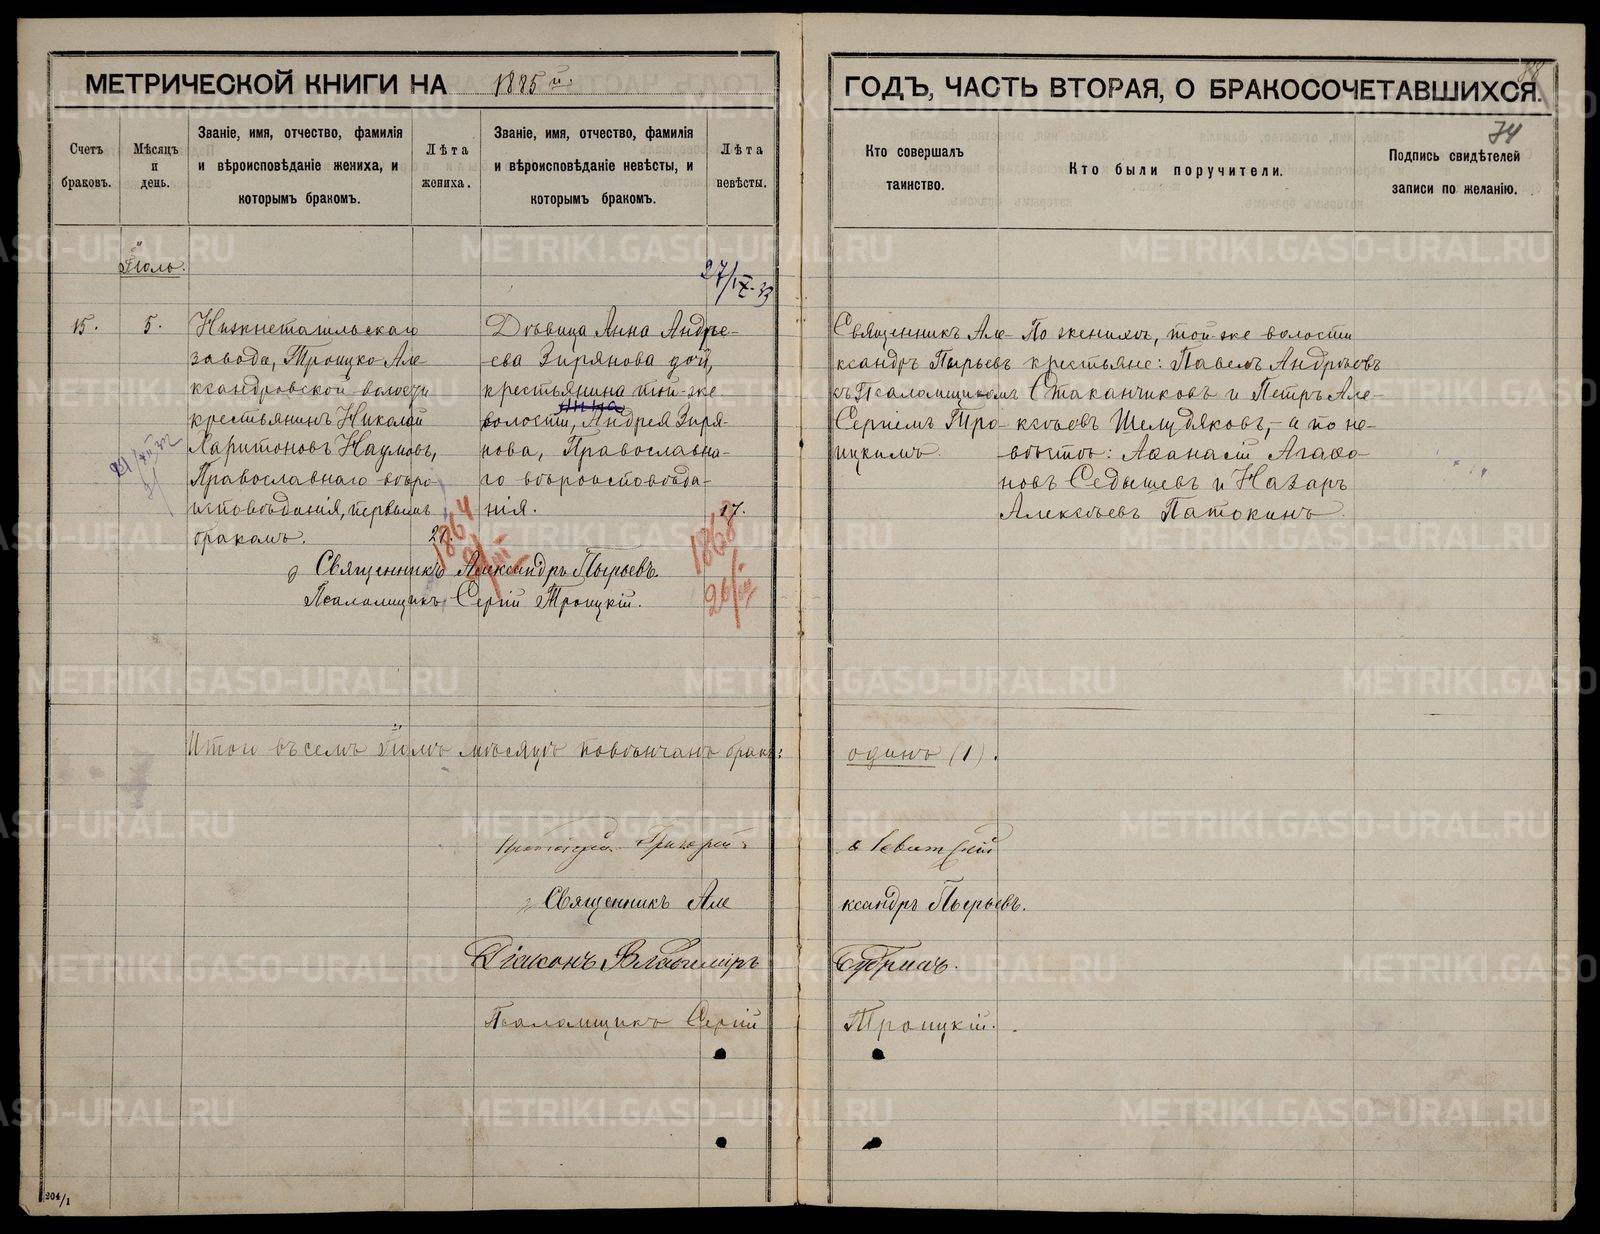 МЕТРИЧЕСКОЙ КНИГИ НА 1885 й.
ГОДЪ, ЧАСТЬ ВТОРАЯ, О БРАКОСОЧЕТАВШИХСЯ.
74
Счетъ браковъ.
Мѣсяцъ и день.
Званіе, имя, отчество, фамилія и вѣроисповѣданіе жениха, и которымъ бракомъ.
Лѣта жениха.
Званіе, имя, отчество, фамилія и вѣроисповѣданіе невѣсты, и которымъ бракомъ.
Лѣта невѣсты.
Кто совершалъ таинство.
Кто были поручители.
Подпись свидѣтелей записи по желанію.
Іюль.
27/IX-33
15.
5.
Нижнетагильскаго
завода, Троицко Але
ксандровской волости
крестьянинъ Николай
Харитоновъ Наумовъ,
Православнаго вѣро
исповѣданія, первымъ
бракомъ.
21.
1864
Дѣвица Анна Андре-
ева Зирянова дочь,
крестьянина той-же
волости, Андрея Зиря-
нова, Православна-
го вѣроисповѣда-
нія.
17.
1868
26/VII
Священникъ Але
ксандръ Пырьевъ
съ Псаломщикомъ
Сергіемъ Тро-
ицкимъ.
По женихѣ, той-же волости
крестьяне: Павелъ Андреевъ
Стаканчиковъ и Петръ Але-
ксѣевъ Шелудяковъ,- а по не-
вѣстѣ: Аѳанасій Агаѳо-
новъ Седышевъ и Назаръ
Алексѣевъ Патокинъ.
Священникъ Александръ Пырьевъ.
Псаломщикъ Сергій Троицкій.
Итого въ семъ Іюлѣ мѣсяцѣ повѣнчанъ бракъ: одинъ (1).
Григорій Левитскій
Священникъ Александръ Пырьевъ.
Діаконъ Владиміръ
Псаломщикъ Сергій Троицкій.
204/1
METRIKI.GASO-URAL.RU